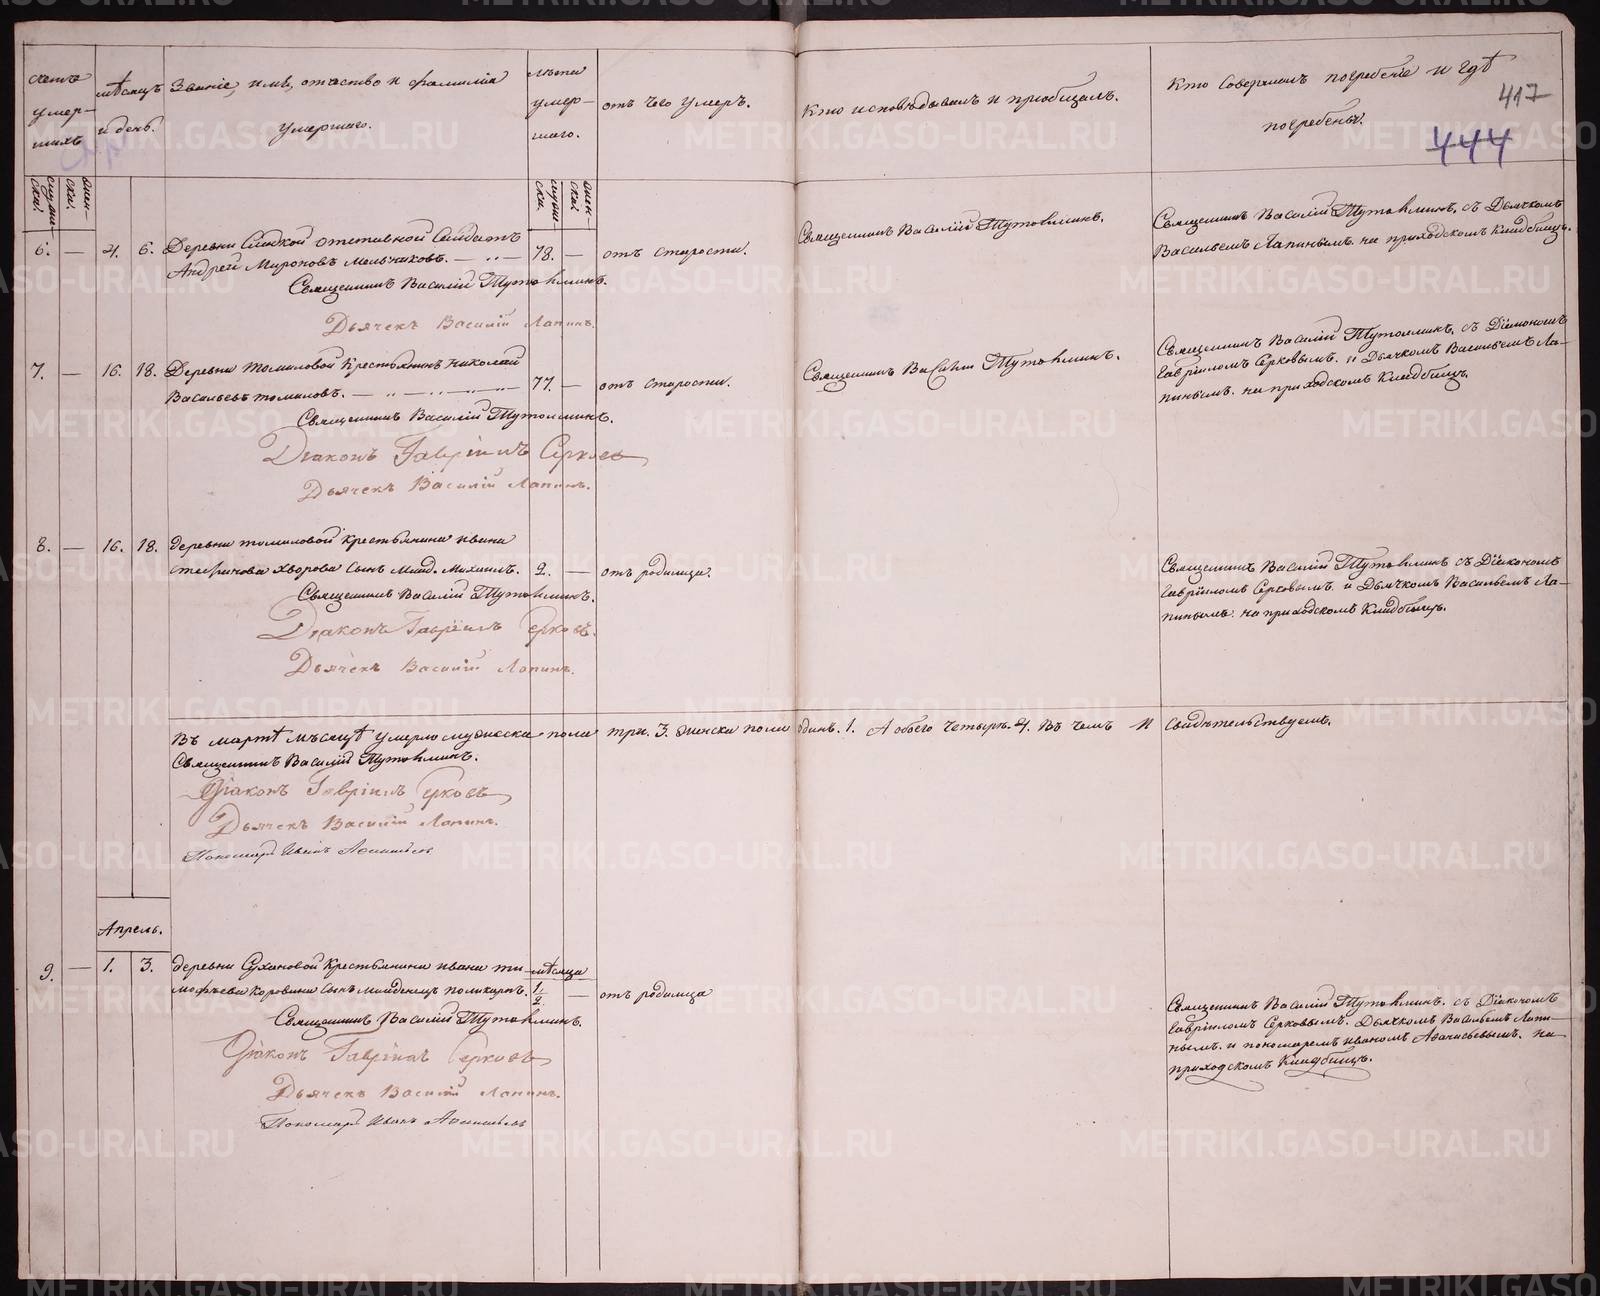 Счетъ умер-шихъ
мѣсяцъ и день.
Званіе, имя, отчество и фамилія умершаго.
Лѣта умер-шаго.
отъ чего умеръ.
Кто исповѣдывалъ и пріобщалъ.
Кто Совершалъ погребеніе и гдѣ погребены.
417
444
6. — 4. 6.
Деревни Сладкой отставной Солдатъ
Андрей Мироновъ Мельниковъ. — „ —
78. — отъ старости.
Священникъ Василій Тутолминъ.
Дьячекъ Василій Лапинъ.
Священникъ Василій Тутолминъ.
Священникъ Василій Тутолминъ, съ Дьячкомъ
Васильемъ Лапинымъ. на приходскомъ Кладбищѣ.
7. — 16. 18.
Деревни Томиловой Крестьянинъ Николай
Васильевъ томиловъ. — „ — „ —
77. — отъ старости.
Священникъ Василій Тутолминъ.
Діаконъ Гавріилъ Серковъ
Дьячекъ Василій Лапинъ.
Священникъ Василій Тутолминъ.
Священникъ Василій Тутолминъ, съ Діакономъ
Гавріиломъ Серковымъ. и Дьячкомъ Васильемъ Ла-
пинымъ. на приходскомъ Кладбищѣ.
8. — 16. 18.
деревни томиловой Крестьянина ивана
хворова Сынъ Млад. Михаилъ.
2. — отъ родимца.
Священникъ Василій Тутолминъ.
Діаконъ Гавріилъ Серковъ.
Дьячекъ Василій Лапинъ.
Священникъ Василій Тутолминъ съ Діакономъ
Гавріиломъ Серковымъ. и Дьячкомъ Васильемъ Ла-
пинымъ. на приходскомъ Кладбищѣ.
Въ мартѣ мѣсяцѣ умерло мужеска пола три. 3. женска пола одинъ. 1. А обоего Четыре. 4. Въ чемъ и свидѣтельствуемъ.
Священникъ Василій Тутолминъ.
Діаконъ Гавріилъ Серковъ
Дьячекъ Василій Лапинъ.
Пономарь Иванъ
Апрель.
9. — 1. 3.
деревни Сухановой Крестьянина ивана ти-
мофѣева Коровина Сынъ младенецъ поликарпъ.
мѣсяца
1/2 — отъ родимца
Священникъ Василій Тутолминъ.
Діаконъ Гавріилъ Серковъ
Дьячекъ Василій Лапинъ.
Пономарь Иванъ
Священникъ Василій Тутолминъ. съ Діакономъ
Гавріиломъ Серковымъ. Дьячкомъ Васильемъ Лапи-
нымъ. и пономаремъ иваномъ на
приходскомъ Кладбищѣ.
METRIKI.GASO-URAL.RU